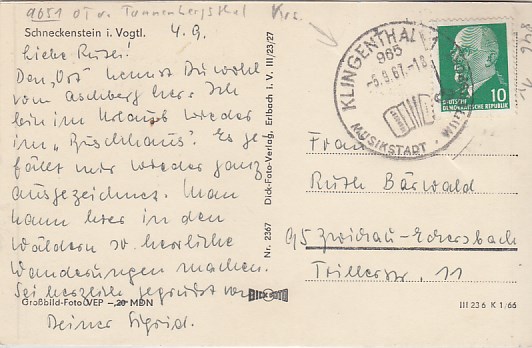 9051 OT v. Tannenbergsthal Krs.
Schneckenstein i. Vogtl.
4.9.
Liebe Ruth!
Den "Ort" kennst Du wohl
vom Aschberg her. Ich
bin im Urlaub wieder
im "Buschhaus". Es ge-
fällt mir wieder ganz
ausgezeichnet. Man
kann hier in den
Wäldern so herrliche
Wanderungen machen.
Sei herzlich gegrüßt von
Deiner Sigrid.
Großbild-Foto VEP -,20 MDN
Dick-Foto-Verlag, Erlbach i. V. III/23/27
Nr. 2367
DICK FOTO
KLINGENTHAL
965
-5.9.67.-18
MUSIKSTADT
10
DEUTSCHE
DEMOKRATISCHE REPUBLIK
Frau
Ruth Bärwald
95 Zwickau-Eckersbach
Trillerstr. 11
III 23 6 K 1/66